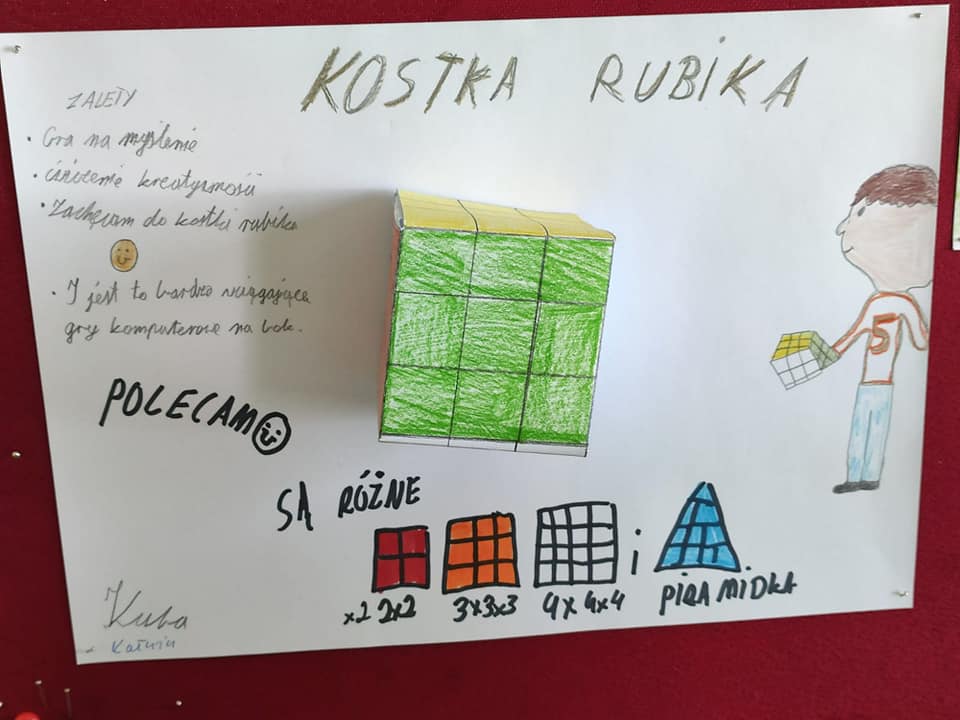 KOSTKA RUBIKA
ZALETY
• Gra na myślenie
• ćwiczenie kreatywności
• Zachęcam do kostki rubika
• I jest to bardzo
gry komputerowe na bok.
POLECAM
5
SĄ RÓŻNE
x2 2x2 3x3x3 4x4x4 i PIRAMIDKA
Kuba